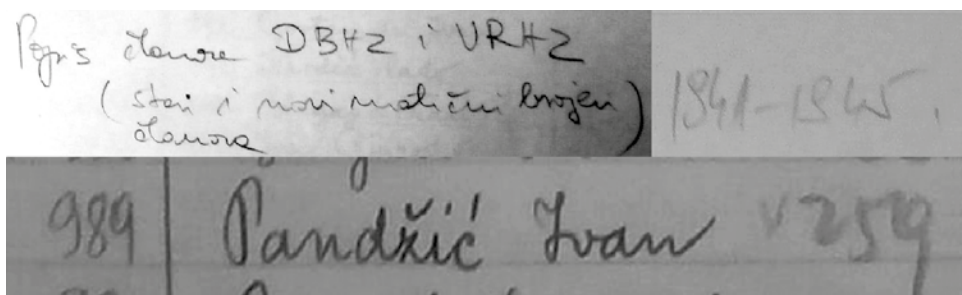 Popis članova DBHZ i VRHZ
(stari i novi matični brojevi
članova)
1941-1945.
989 Pandžić Ivan v259